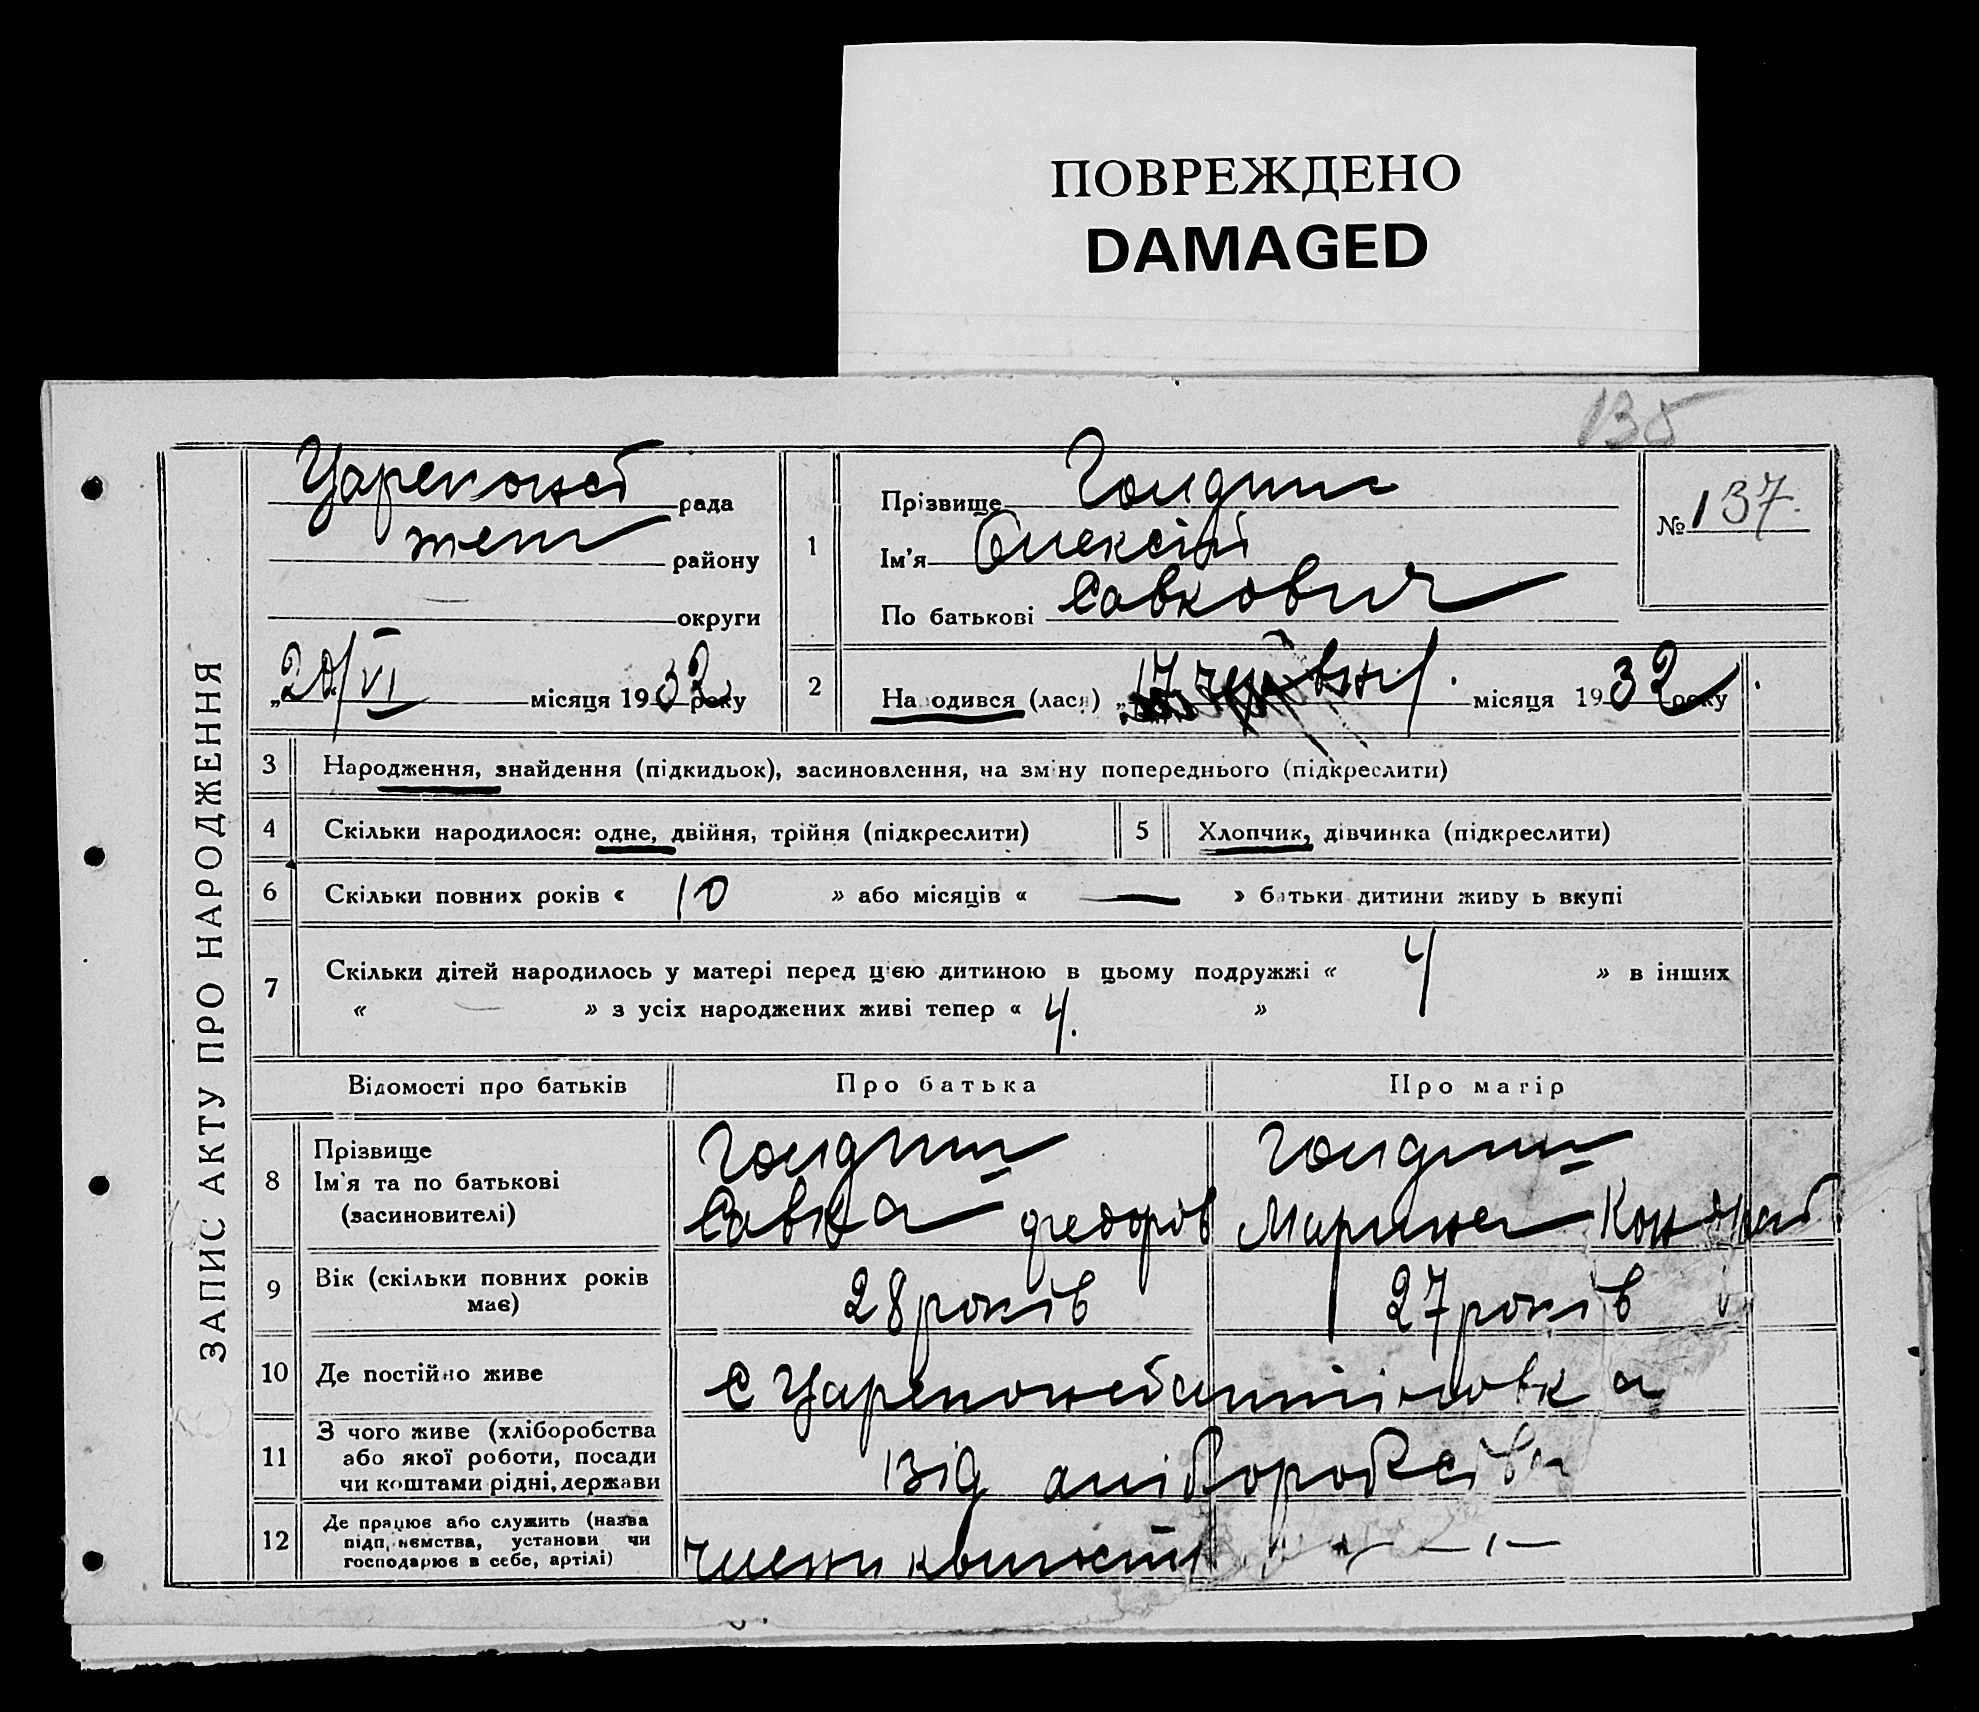 ПОВРЕЖДЕНО
DAMAGED
135
ЗАПИС АКТУ ПРО НАРОДЖЕННЯ
рада
району
округи
„20/VI місяця 1932 року
1
Прізвище
Ім'я Олексій
По батькові Савкович
№ 137.
2
Народився (лася) „17 місяця 1932 року
3 Народження, знайдення (підкидьок), засиновлення, на зміну попереднього (підкреслити)
4 Скільки народилося: одне, двійня, трійня (підкреслити)
5 Хлопчик, дівчинка (підкреслити)
6 Скільки повних років « 10 » або місяців « — » батьки дитини живуть вкупі
7 Скільки дітей народилось у матері перед цією дитиною в цьому подружжі « 4 » в інших
« — » з усіх народжених живі тепер « 4. »
Відомості про батьків Про батька Про матір
8 Прізвище
Ім'я та по батькові
(засиновителі)
Савка Федоров Марина Кондрат
9 Вік (скільки повних років
має)
28 років 27 років
10 Де постійно живе
11 З чого живе (хліборобства
або якої роботи, посади
чи коштами рідні, держави
від
12 Де працює або служить (назва
підприємства, установи чи
господарює в себе, артілі)
члени